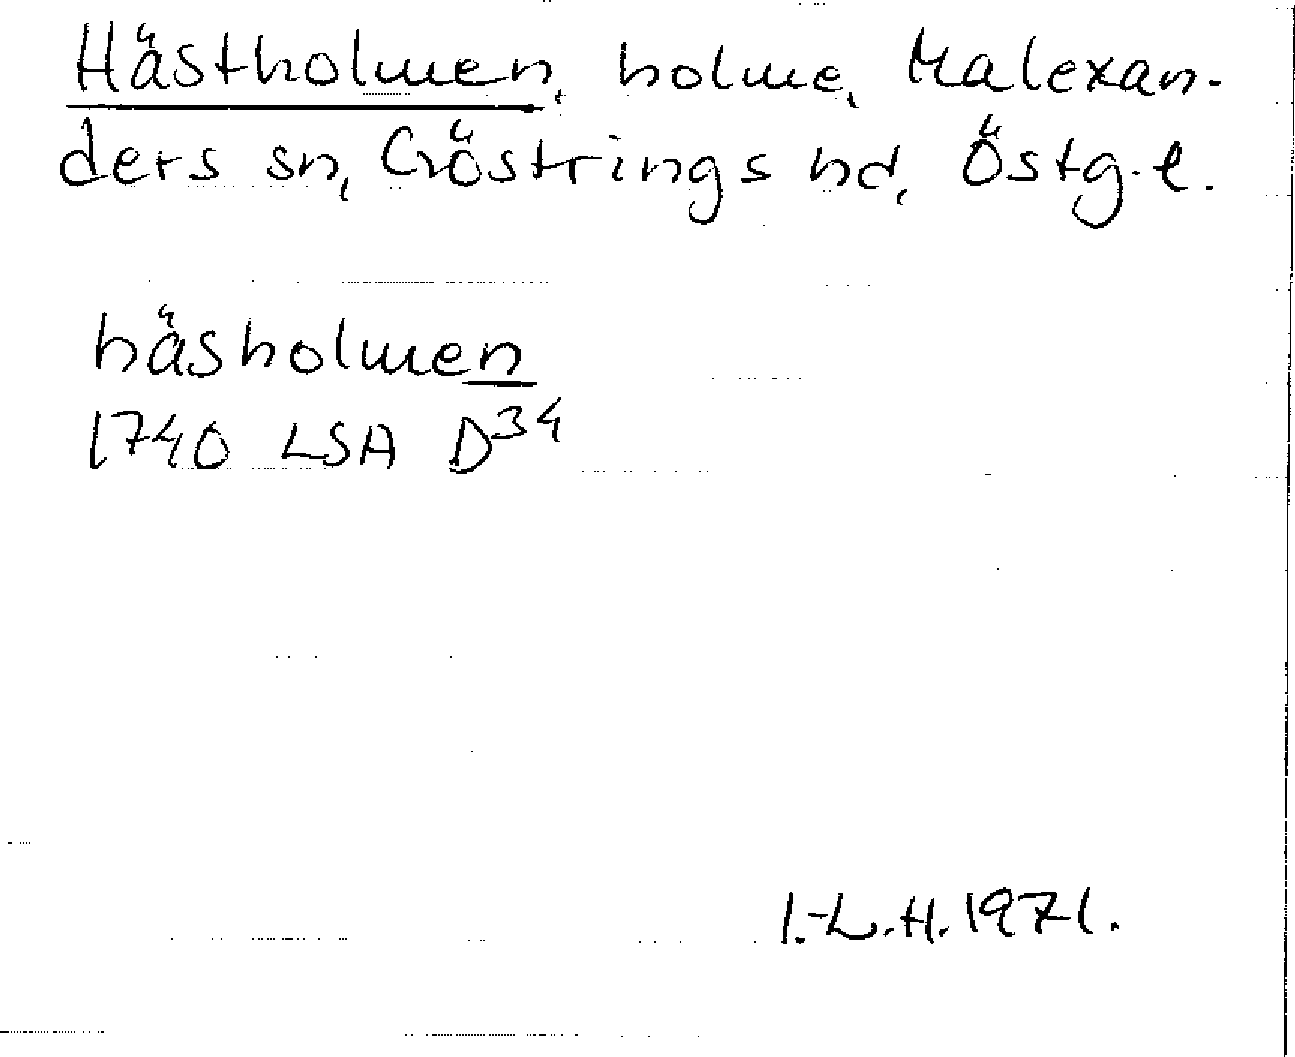 Hästholmen, holme, Malexan-
ders sn, Göstrings hd, Östg.l.
häsholmen
1740 LSA D34
I.-L.H. 1971.